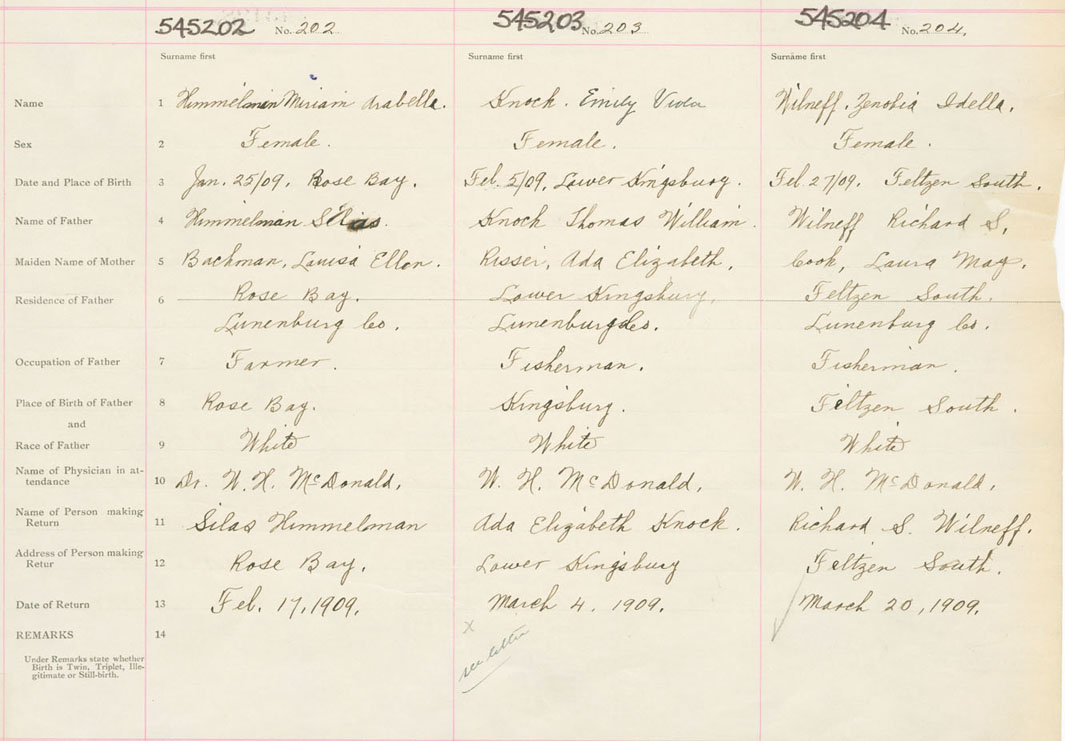 545202 No. 202 545203 No. 203 545204 No. 204.
Surname first Surname first Surname first
Name 1 Himmelman Miriam Arabella. Knock. Emily Viola Wilneff. Zenobia Idella.
Sex 2 Female. Female. Female.
Date and Place of Birth 3 Jan. 25/09. Rose Bay. Feb. 5/09, Lower Kingsburg. Feb. 27/09. Feltzen South.
Name of Father 4 Himmelman Silas. Knock Thomas William. Wilneff Richard S,
Maiden Name of Mother 5 Bachman, Louisa Ellen. Risser, Ada Elizabeth, Cook, Laura May.
Residence of Father 6 Rose Bay. Lower Kingsburg, Feltzen South.
Lunenburg Co. Lunenburg Co. Lunenburg Co.
Occupation of Father 7 Farmer. Fisherman. Fisherman.
Place of Birth of Father 8 Rose Bay. Kingsburg. Feltzen South.
and
Race of Father 9 White White White
Name of Physician in at-
tendance 10 Dr. W. H. McDonald, W. H. McDonald, W. H. McDonald,
Name of Person making
Return 11 Silas Himmelman Ada Elizabeth Knock. Richard S. Wilneff.
Address of Person making
Retur 12 Rose Bay, Lower Kingsburg Feltzen South.
Date of Return 13 Feb. 17, 1909. March 4. 1909. March 20, 1909.
REMARKS 14 x
see letter
Under Remarks state whether
Birth is Twin, Triplet, Ille-
gitimate or Still-birth.